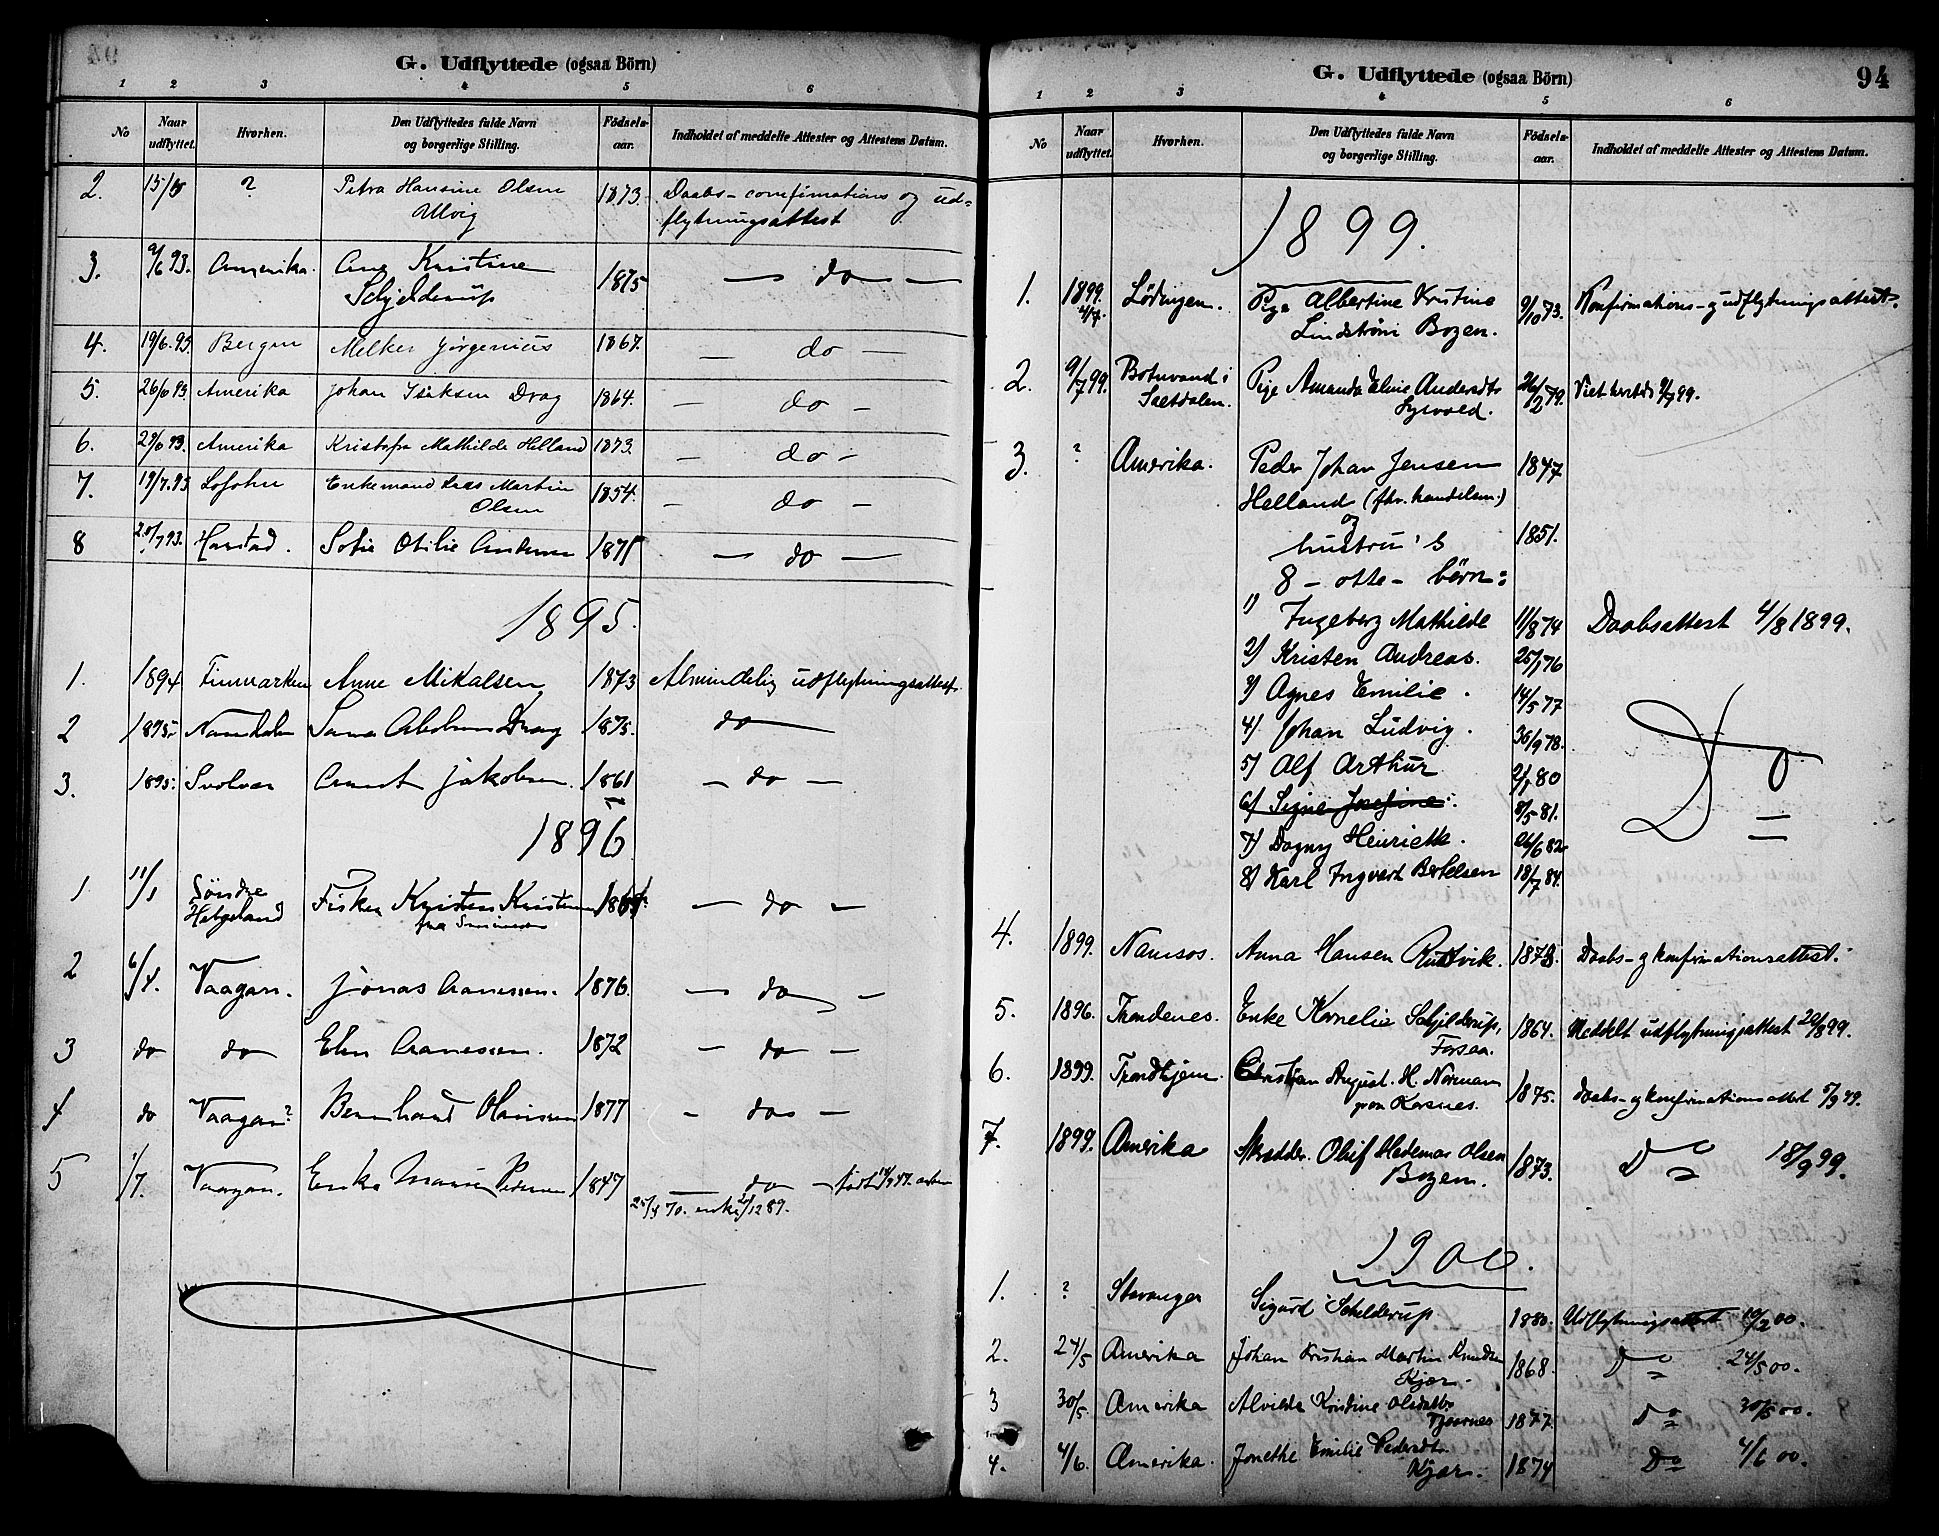 G. Udflyttede (ogsaa Börn)
1 2 3 4 5 6
No Naar udflyttet. Hvorhen. Den Udflyttedes fulde Navn og borgerlige Stilling. Födselsaar. Indholdet af meddelte Attester og Attestens Datum.
2. ? Petra Hansine Olsen 1873. Daabs- og ud-
flytningsattest
3. 9/6 93. Amerika. Ane Kristine 1875 — do —
Schjelderup
4. 19/6.93. Bergen Melker 1867. — do —
5. 26/6 93 Amerika Johan Isaksen Drag 1864. — do —
6. 29/6 93. Amerika Mathilde Helland 1873. — do —
7. 19/7.93 Enkemand Martin 1854. — do —
Olsen
8 20/7 93. Harstad. Sofie Otilie 1875 — do —
1895.
1. 1894 Finmarken Anne Mikalsen 1873 Almindelig udflytningsattest.
2 1895. Drag 1875. do —
3. 1895. Svolvær Arndt Jakobsen. 1861 — do —
1896
1 11/1 Söndre Fisker Kristen — do —
Helgeland fra
2 6/4. Vaagan. Jonas 1876. — do —
3 do do Elen 1872 — do —
4 do Vaagan? Bernhard Hansen 1877 — do —
5 1/7. Vaagan. Enke Pedersen 1847 — do — født
25/4 70. enke 89.
G. Udflyttede (ogsaa Börn) 94
1 2 3 4 5 6
No Naar udflyttet. Hvorhen. Den Udflyttedes fulde Navn og borgerlige Stilling. Födselsaar. Indholdet af meddelte Attester og Attestens Datum.
1899.
1. 1899. Lødingen. Pige Albertine Kristine 9/10 73. Konfirmations- og udflytningsattest.
Lindstrøm Bogen.
2. 9/7 99. Botnvand i Pige Amanda Eline Andersdtr 26/2 79. 9/7 99.
Saltdalen.
3. ? Amerika. Peder Johan Jensen 1847
Helland (fhv. handelsm.)
og
hustru's 1851.
8 – otte – børn:
1) Ingeborg Mathilde 11/8 74 Daabsattest 4/8 1899.
2) Kristen Andreas. 25/1 76
3) Agnes Emilie. 14/5 77 Do
4) Johan Ludvig. 30/9 78.
5) Alf Arthur 2/1 80
6) Signe Josefine. 8/5 81.
7) Dagny Henriette. 26/6 82
8) Karl Ingvart Bertelsen 18/7 84.
4. 1899. Namsos. Anna Hansen Daabs- og konfirmationsattest.
5. 1896. Trondenes. Enke Kornelie Schjelderup, 1864. Meddelt udflytningsattest 20/8 99.
Forsaa.
6. 1899. Trondhjem. Christian August. H. Normann 1875. Daabs- og konfirmationsattest 5/9 99.
Korsnes.
7. 1899. Amerika Skrædder. Oluf Hedemar Olsen 1873. Do 18/9 99.
Bogen.
1900.
1. ? Stavanger Sigurd Schelderup 1880. Udflytningsattest 10/2 00.
2. 24/5 Amerika Johan Kristian Martin Knudsen 1868. Do 24/5 00.
Kjær.
3 30/5 Amerika Alvilde Kristine Olsdatter 1877. Do 30/5 00.
4. 4/6. Amerika. Jonethe Emilie Pedersdtr. 1874 Do 4/6 00.
Kjær.